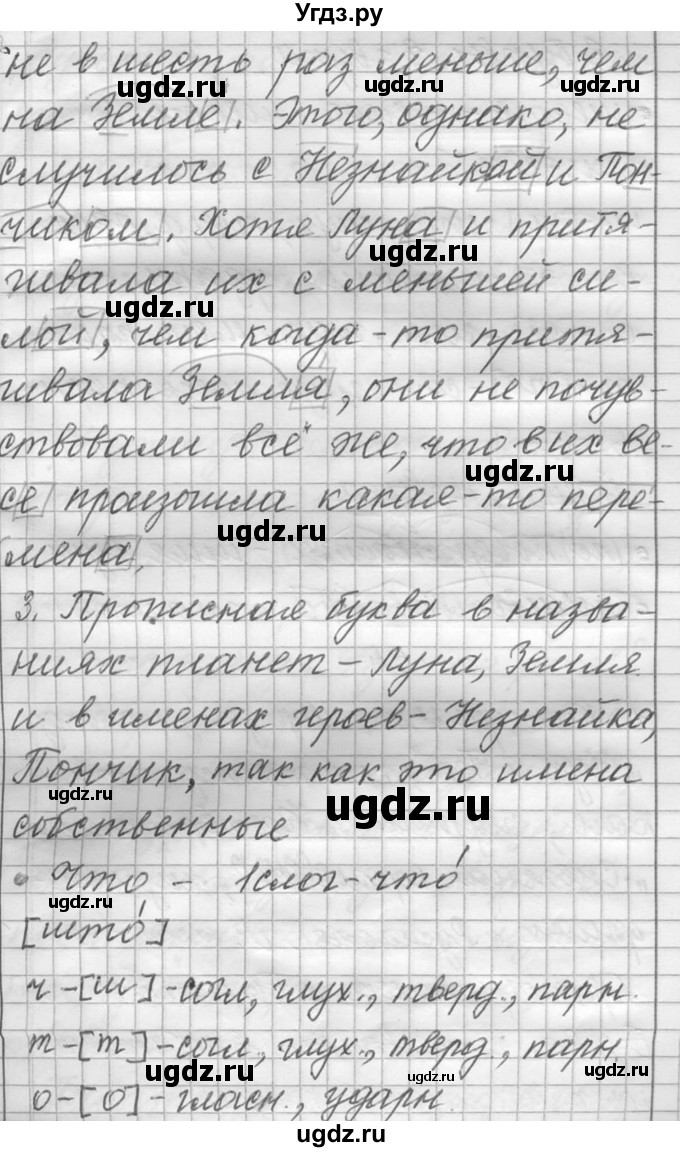 Угдз.ру
не в шесть раз меньше, чем
ugdz.ru ugdz.ru ugdz.ru
на Земле. Этого, однако, не
случилось с Незнайкой и Пон-
чиком. Хотя Луна и притя-
ugdz.ru
гивала их с меньшей си-
ugdz.ru
лой, чем когда-то притя-
гивала Земля, они не почув-
ствовали всё же, что в их ве-
ugdz.ru
се произошла какая-то пере-
ugdz.ru
мена.
3. Прописная буква в назва-
ниях планет – Луна, Земля
и в именах героев – Незнайка,
Пончик, так как это имена
ugdz.ru ugdz.ru
собственные
Что – 1 слог – что́
ugdz.ru
[што́]
ч – [ш] – согл, глух., тверд., парн.
т – [т] – согл., глух., тверд., парн.
ugdz.ru ugdz.ru ugdz.ru
о – [о] – гласн., ударн.
ugdz.ru